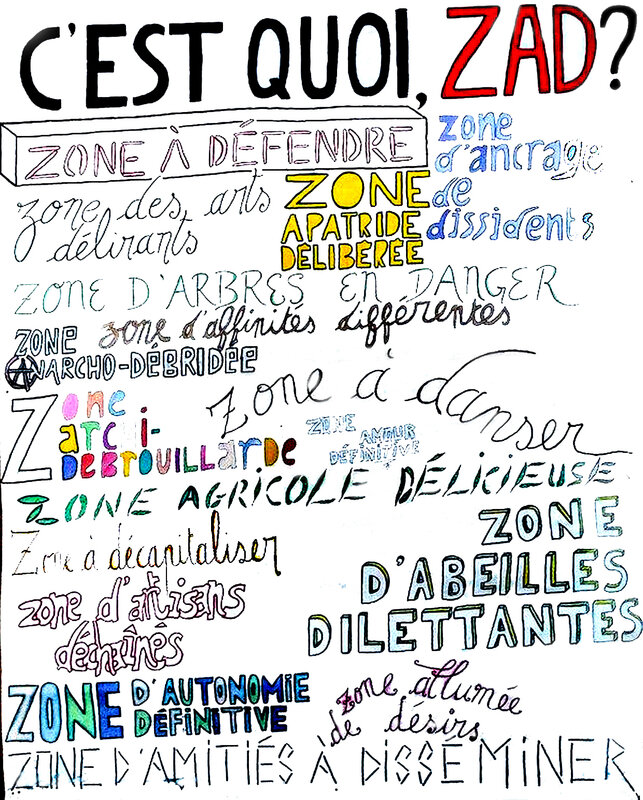 C'EST QUOI, ZAD?
ZONE À DÉFENDRE
zone
d'ancrage
de
dissidents
zone des arts
délirants
ZONE
APATRIDE
DÉLIBÉRÉE
ZONE D'ARBRES EN DANGER
zone d'affinités différentes
ZONE
ANARCHO-DÉBRIDÉE
Zone à danser
Zone
archi-
DEBROUILLARDE
ZONE
AMOUR
DÉFINITIVE
ZONE AGRICOLE DÉLICIEUSE
Zone à décapitaliser
ZONE
D'ABEILLES
DILETTANTES
zone d'artisans
déchaînés
ZONE D'AUTONOMIE
DÉFINITIVE
zone allumée
de désirs
ZONE D'AMITIÉS À DISSÉMINER